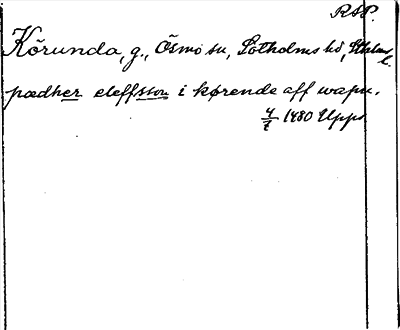 RAP.
Körunda, g., Ösmo sn, Sotholms hd, Sthlms l.
pædher eleffsson i kørende aff wapn.
4/7 1480 Upps